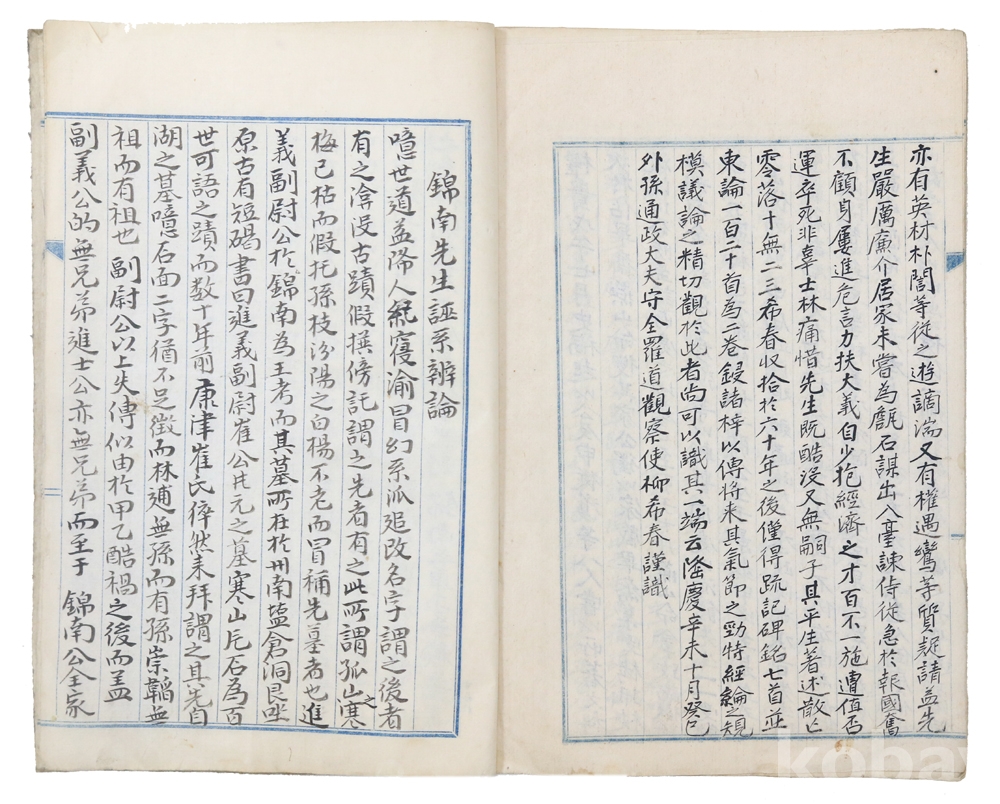 亦有英材朴誾等從之遊謫湍又有權遇鸞等質疑請益先
生嚴厲廉介居家未嘗為甔石謀出入臺諫侍從急於報國奮
不顧身屢進危言力扶大義自少抱經濟之才百不一施遭值否
運卒死非辜士林痛惜先生既酷沒又無嗣子其平生著述散亡
零落十無二三希春收拾於六十年之後僅得疏記碑銘七首並
東論一百二十首為二卷鋟諸梓以傳將来其氣節之勁特經綸之規
模議論之精切觀於此者尚可以識其一端云隆慶辛未十月癸巳
外孫通政大夫守全羅道觀察使柳希春謹識
錦南先生誣系辨論
噫世道益降人紀寖渝冒幻系派追改名字謂之後者
有之渰没古蹟假撰傍託謂之先者有之此所謂孤山之寒
梅已枯而假托孫枝汾陽之白楊不老而冒補先墓者也進
義副尉公於錦南為王考而其墓所在於州南塩倉洞艮坐
原古有短碣書曰進義副尉崔公井元之墓寒山片石為百
世可語之蹟而数十年前康津崔氏倅然来拜謂之其先自
湖之墓噫石面二字猶不足徵而林逋無孫而有孫崇韜無
祖而有祖也副尉公以上失傳似由於甲乙酷禍之後而盖
副義公的無兄弟進士公亦無兄弟而至于錦南公全家
kobay